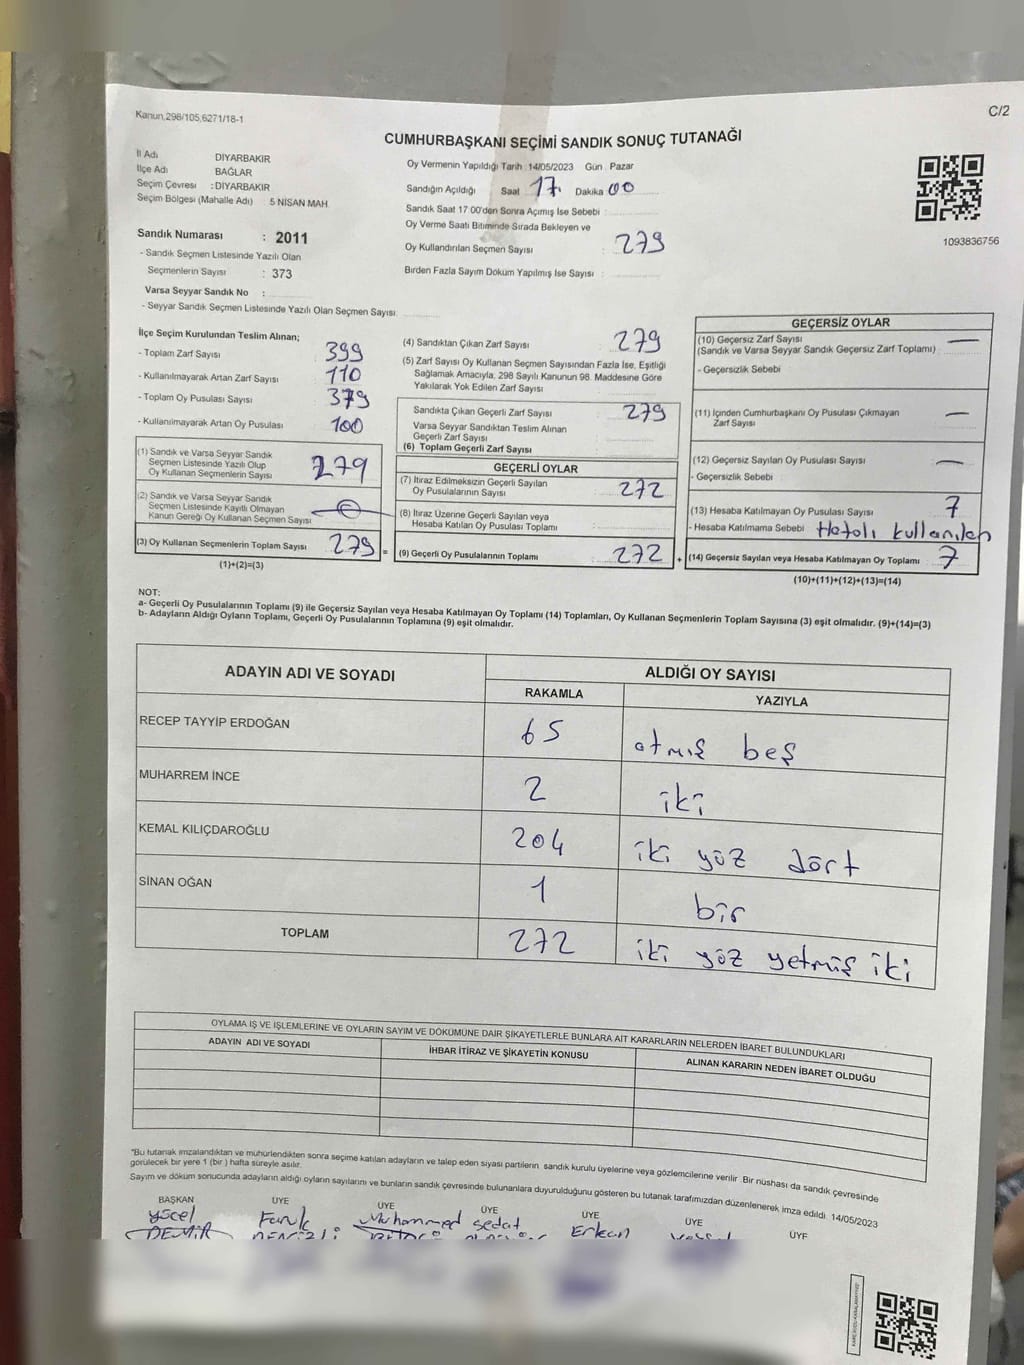 Kanun,298/105,6271/18-1
C/2
CUMHURBAŞKANI SEÇİMİ SANDIK SONUÇ TUTANAĞI
İl Adı DİYARBAKIR
İlçe Adı BAĞLAR
Seçim Çevresi : DİYARBAKIR
Seçim Bölgesi (Mahalle Adı) 5 NİSAN MAH.
Sandık Numarası : 2011
- Sandık Seçmen Listesinde Yazılı Olan
Seçmenlerin Sayısı : 373
Varsa Seyyar Sandık No :
- Seyyar Sandık Seçmen Listesinde Yazılı Olan Seçmen Sayısı:
Oy Vermenin Yapıldığı Tarih : 14/05/2023 Gün : Pazar
Sandığın Açıldığı Saat 17. Dakika 00
Sandık Saat 17:00'den Sonra Açılmış İse Sebebi :
Oy Verme Saati Bitiminde Sırada Bekleyen ve
Oy Kullandırılan Seçmen Sayısı : 279
Birden Fazla Sayım Döküm Yapılmış İse Sayısı :
1093836756
İlçe Seçim Kurulundan Teslim Alınan;
- Toplam Zarf Sayısı 399
- Kullanılmayarak Artan Zarf Sayısı 110
- Toplam Oy Pusulası Sayısı 379
- Kullanılmayarak Artan Oy Pusulası 100
(1) Sandık ve Varsa Seyyar Sandık
Seçmen Listesinde Yazılı Olup
Oy Kullanan Seçmenlerin Sayısı 279
(2) Sandık ve Varsa Seyyar Sandık
Seçmen Listesinde Kayıtlı Olmayan
Kanun Gereği Oy Kullanan Seçmen Sayısı 0
(3) Oy Kullanan Seçmenlerin Toplam Sayısı 279 =
(1)+(2)=(3)
(4) Sandıktan Çıkan Zarf Sayısı : 279
(5) Zarf Sayısı Oy Kullanan Seçmen Sayısından Fazla İse, Eşitliği
Sağlamak Amacıyla, 298 Sayılı Kanunun 98. Maddesine Göre
Yakılarak Yok Edilen Zarf Sayısı :
Sandıkta Çıkan Geçerli Zarf Sayısı : 279
Varsa Seyyar Sandıktan Teslim Alınan
Geçerli Zarf Sayısı :
(6) Toplam Geçerli Zarf Sayısı :
GEÇERLİ OYLAR
(7) İtiraz Edilmeksizin Geçerli Sayılan
Oy Pusulalarının Sayısı : 272
(8) İtiraz Üzerine Geçerli Sayılan veya
Hesaba Katılan Oy Pusulası Toplamı :
(9) Geçerli Oy Pusulalarının Toplamı : 272 +
GEÇERSİZ OYLAR
(10) Geçersiz Zarf Sayısı —
(Sandık ve Varsa Seyyar Sandık Geçersiz Zarf Toplamı) :
- Geçersizlik Sebebi
(11) İçinden Cumhurbaşkanı Oy Pusulası Çıkmayan —
Zarf Sayısı
(12) Geçersiz Sayılan Oy Pusulası Sayısı : —
- Geçersizlik Sebebi :
(13) Hesaba Katılmayan Oy Pusulası Sayısı : 7
- Hesaba Katılmama Sebebi : Hatalı kullanılan
(14) Geçersiz Sayılan veya Hesaba Katılmayan Oy Toplamı : 7
(10)+(11)+(12)+(13)=(14)
NOT:
a- Geçerli Oy Pusulalarının Toplamı (9) ile Geçersiz Sayılan veya Hesaba Katılmayan Oy Toplamı (14) Toplamları, Oy Kullanan Seçmenlerin Toplam Sayısına (3) eşit olmalıdır. (9)+(14)=(3)
b- Adayların Aldığı Oyların Toplamı, Geçerli Oy Pusulalarının Toplamına (9) eşit olmalıdır.
ADAYIN ADI VE SOYADI ALDIĞI OY SAYISI
RAKAMLA YAZIYLA
RECEP TAYYİP ERDOĞAN 65 atmış beş
MUHARREM İNCE 2 iki
KEMAL KILIÇDAROĞLU 204 iki yüz dört
SİNAN OĞAN 1 bir
TOPLAM 272 iki yüz yetmiş iki
OYLAMA İŞ VE İŞLEMLERİNE VE OYLARIN SAYIM VE DÖKÜMÜNE DAİR ŞİKAYETLERLE BUNLARA AİT KARARLARIN NELERDEN İBARET BULUNDUKLARI
ADAYIN ADI VE SOYADI İHBAR İTİRAZ VE ŞİKAYETİN KONUSU ALINAN KARARIN NEDEN İBARET OLDUĞU
"Bu tutanak imzalandıktan ve mühürlendikten sonra seçime katılan adayların ve talep eden siyasi partilerin sandık kurulu üyelerine veya gözlemcilerine verilir. Bir nüshası da sandık çevresinde
görülecek bir yere 1 (bir) hafta süreyle asılır.
Sayım ve döküm sonucunda adayların aldığı oyların sayılarını ve bunların sandık çevresinde bulunanlara duyurulduğunu gösteren bu tutanak tarafımızdan düzenlenerek imza edildi. 14/05/2023
BAŞKAN ÜYE ÜYE ÜYE ÜYE ÜYE ÜYE
Yücel Faruk Muhammed Sedat Erkan
DEMİR